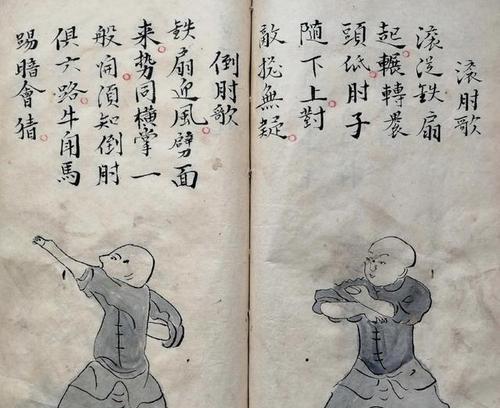 滚肘歌
滚従鉄扇
起輾轉畏
頭低肘子
隨下上對
敵擾無疑
倒肘歌
鉄扇迎風劈面
来势同横掌一
般開須知倒肘
俱六路牛角馬
踢暗會猜